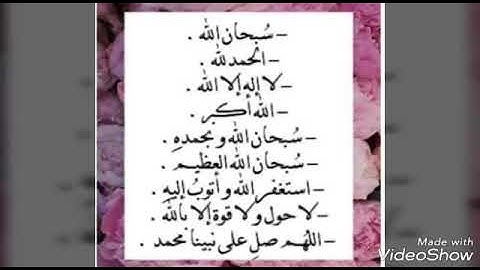 - سُبحان الله .
- الحمد لله .
- لا إله إلا الله .
- الله أكبر .
- سُبحان الله و بحمدهِ .
- سُبحان الله العظيم .
- استغفر الله و أتوبُ إليه .
- لا حول ولا قوة إلا بالله .
- اللهم صلِ على نبينا محمد .
Made with
VideoShow